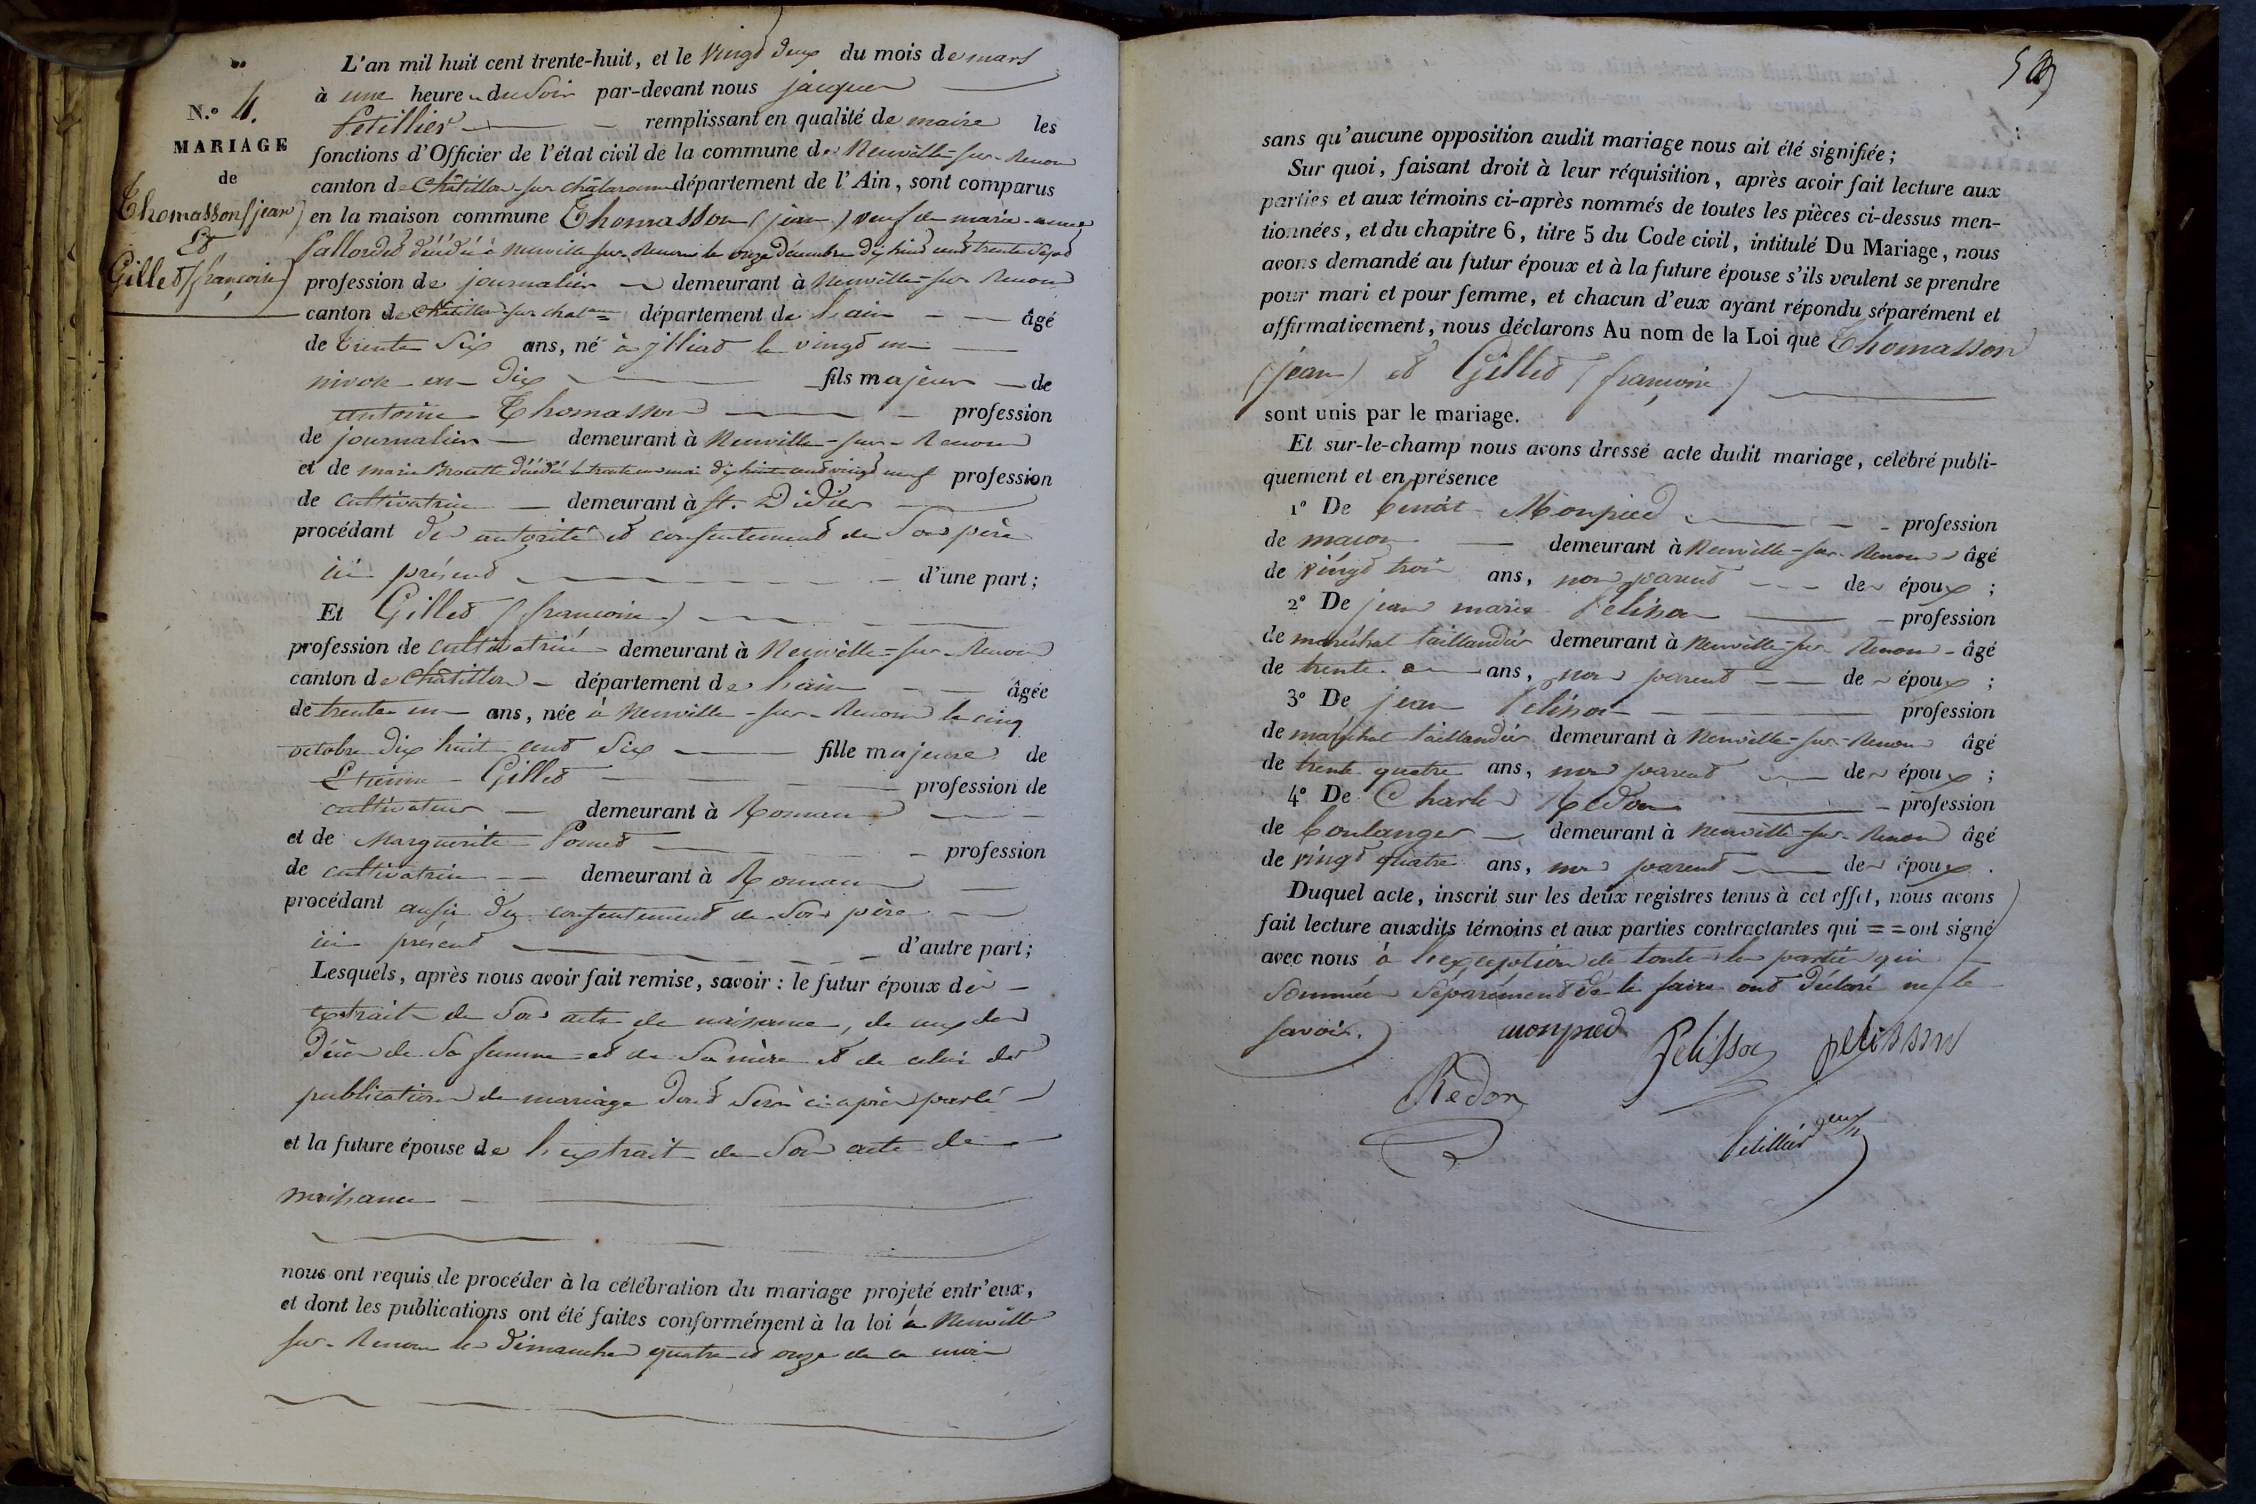 N.º 4.
MARIAGE
de
Thomasson (jean)
Et
Gillet (françoise)
L'an mil huit cent trente-huit, et le vingt deux du mois de mars
à une heure du soir par-devant nous jacques
Petillier remplissant en qualité de maire les
fonctions d'Officier de l'état civil de la commune de Neuville-sur-Renom
canton de Châtillon-sur-chalaronne département de l'Ain, sont comparus
en la maison commune Thomasson (jean) veuf de marie-anne
décédée à Neuville sur-Renom le onze décembre dix huit cent trente sept
profession de journalier demeurant à Neuville-sur-Renom
canton de Châtillon-sur-chalne département de l'ain âgé
de trente six ans, né à illiat le vingt un
nivose an dix fils majeur de
antoine Thomasson profession
de journalier demeurant à Neuville-sur-Renom
et de marie décédée le trente un mai dix huit cent vingt neuf profession
de cultivatrice demeurant à St. Didier
procédant de autorité et consentement de son père
ici présent d'une part;
Et Gillet (françoise)
profession de cultivatrice demeurant à Neuville-sur-Renom
canton de Châtillon département de l'ain âgée
de trente un ans, née à Neuville-sur-Renom le cinq
octobre dix huit cent six fille majeure de
Etienne Gillet profession de
cultivateur demeurant à Romans
et de Marguerite Pomet profession
de cultivatrice demeurant à Romans
procédant aussi du consentement de son père
ici présent d'autre part;
Lesquels, après nous avoir fait remise, savoir: le futur époux des
extraits de son acte de naissance, de ceux de
décès de sa femme et de sa mère et de celui des
publications de mariage dont sera ci après parlé
et la future épouse de l'extrait de son acte de
naissance
nous ont requis de procéder à la célébration du mariage projeté entr'eux,
et dont les publications ont été faites conformément à la loi à Neuville
sur-Renom les dimanches quatre et onze de ce mois
sans qu'aucune opposition audit mariage nous ait été signifiée;
Sur quoi, faisant droit à leur réquisition, après avoir fait lecture aux
parties et aux témoins ci-après nommés de toutes les pièces ci-dessus men-
tionnées, et du chapitre 6, titre 5 du Code civil, intitulé Du Mariage, nous
avons demandé au futur époux et à la future épouse s'ils veulent se prendre
pour mari et pour femme, et chacun d'eux ayant répondu séparément et
affirmativement, nous déclarons Au nom de la Loi que Thomasson
(jean) et Gillet (françoise)
sont unis par le mariage.
Et sur-le-champ nous avons dressé acte dudit mariage, célébré publi-
quement et en présence
1º De benoit Monpied profession
de maçon demeurant à Neuville-sur-Renom âgé
de vingt trois ans, non parent des époux;
2º De jean marie Pelisson profession
de maréchal taillandier demeurant à Neuville-sur-Renom âgé
de trente ans, non parent des époux;
3º De jean Pelisson profession
de maréchal taillandier demeurant à Neuville-sur-Renom âgé
de trente quatre ans, non parent des époux;
4º De Charles Redon profession
de boulanger demeurant à Neuville-sur-Renom âgé
de vingt quatre ans, non parent des époux.
Duquel acte, inscrit sur les deux registres tenus à cet effet, nous avons
fait lecture auxdits témoins et aux parties contractantes qui == ont signé
avec nous à l'exception de toutes les parties qui
sommées séparément de le faire ont déclaré ne le
savoir.
monpied Pelisson pelisson
Redon
Petillier